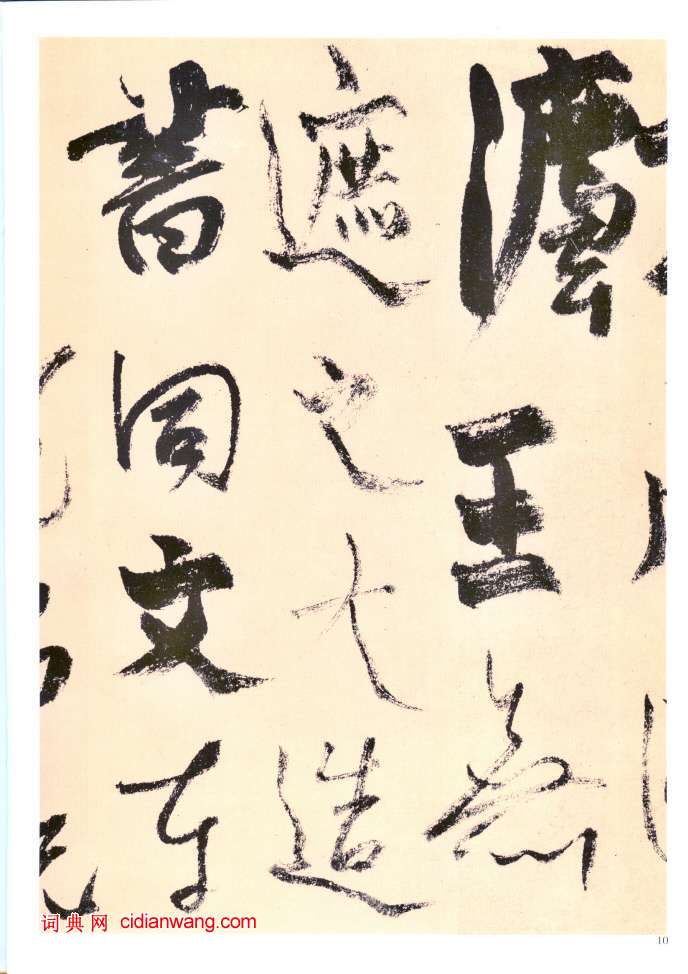 灋王無
遮之大造
書同文車
词典网 cidianwang.com
10